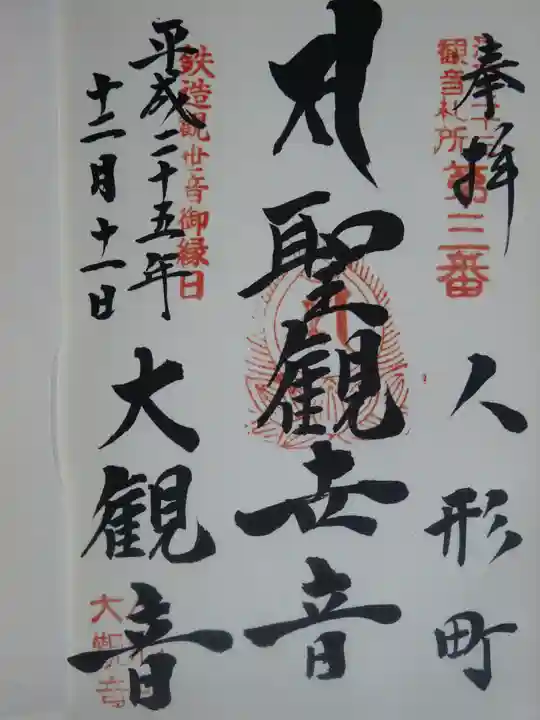 奉拝
観音札所第三番
人形町
聖観世音
鉄造観世音御縁日
平成二十五年
十二月十一日
大観音
大観音